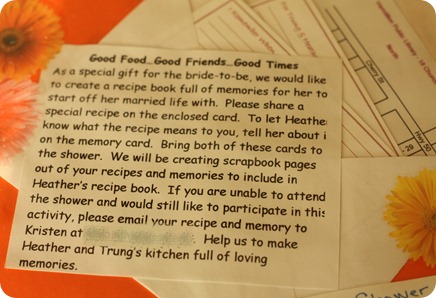 Good Food...Good Friends...Good Times
As a special gift for the bride-to-be, we would like
to create a recipe book full of memories for her to
start off her married life with. Please share a
special recipe on the enclosed card. To let Heather
know what the recipe means to you, tell her about i
on the memory card. Bring both of these cards to
the shower. We will be creating scrapbook pages
out of your recipes and memories to include in
Heather's recipe book. If you are unable to attend
the shower and would still like to participate in this
activity, please email your recipe and memory to
Kristen at
Help us to make
Heather and Trung's kitchen full of loving
memories.
Cherry St
Hwy 50
29
North
Shower